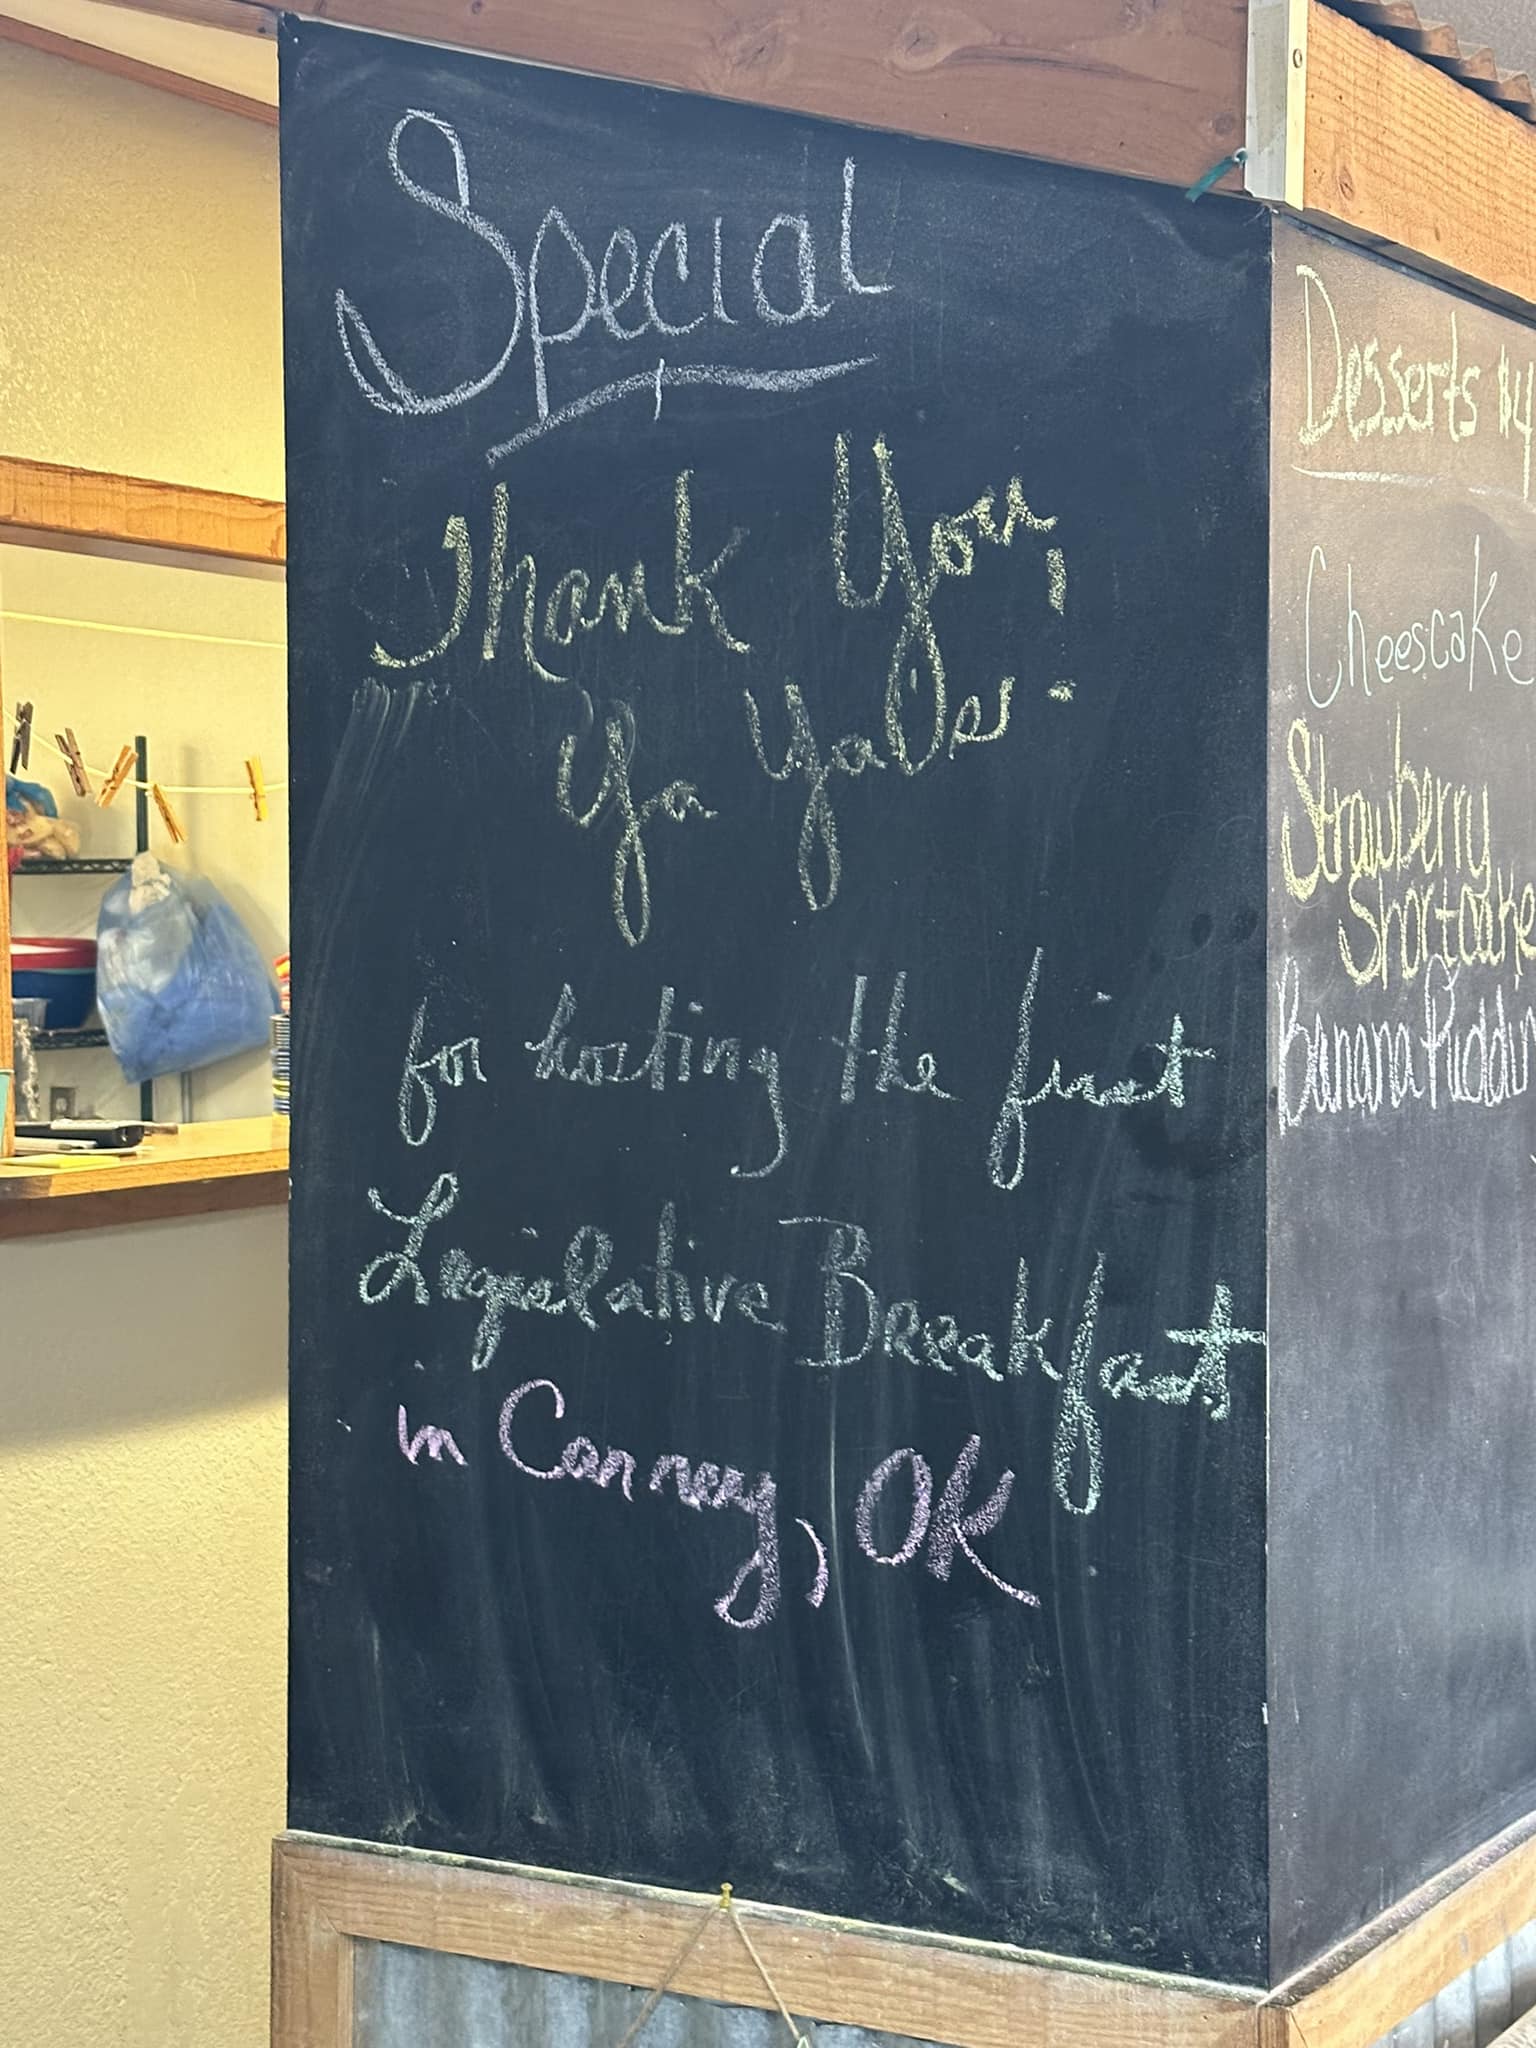 Special
Thank You,
Ya Ya's!
for hosting the first
Legislative Breakfast
in Carney, OK
Desserts $4
Cheescake
Strawberry
Shortcake
Banana Puddin